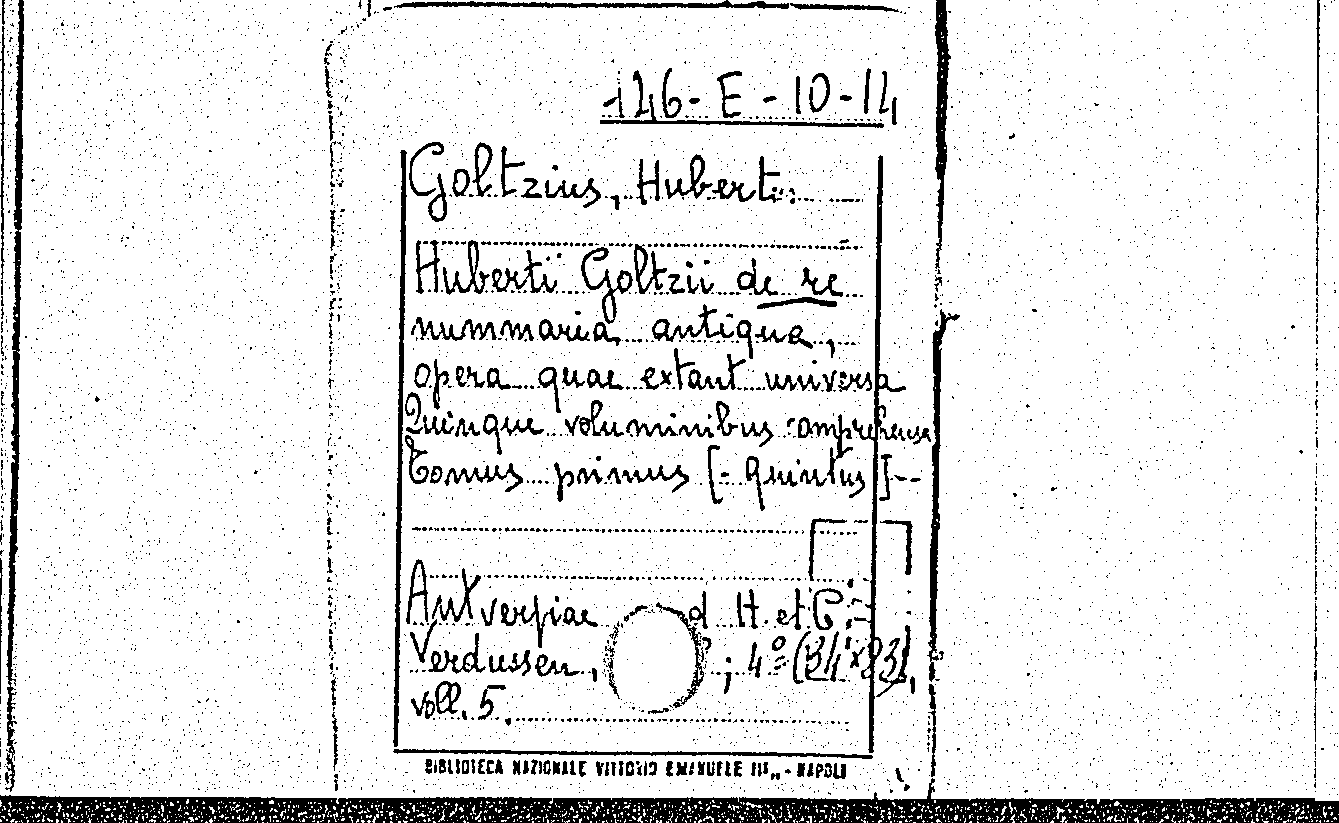 126-E-10-14
Goltzius, Hubert..
Huberti Goltzii de re
nummaria antiqua,
opera quae extant universa
Quinque voluminibus comprehensa
Tomus primus [- quintus]--
Antverpiae d H. et C.
Verdussen, ; 4º (34x23),
voll. 5.
BIBLIOTECA NAZIONALE VITTORIO EMANUELE III„ - NAPOLI